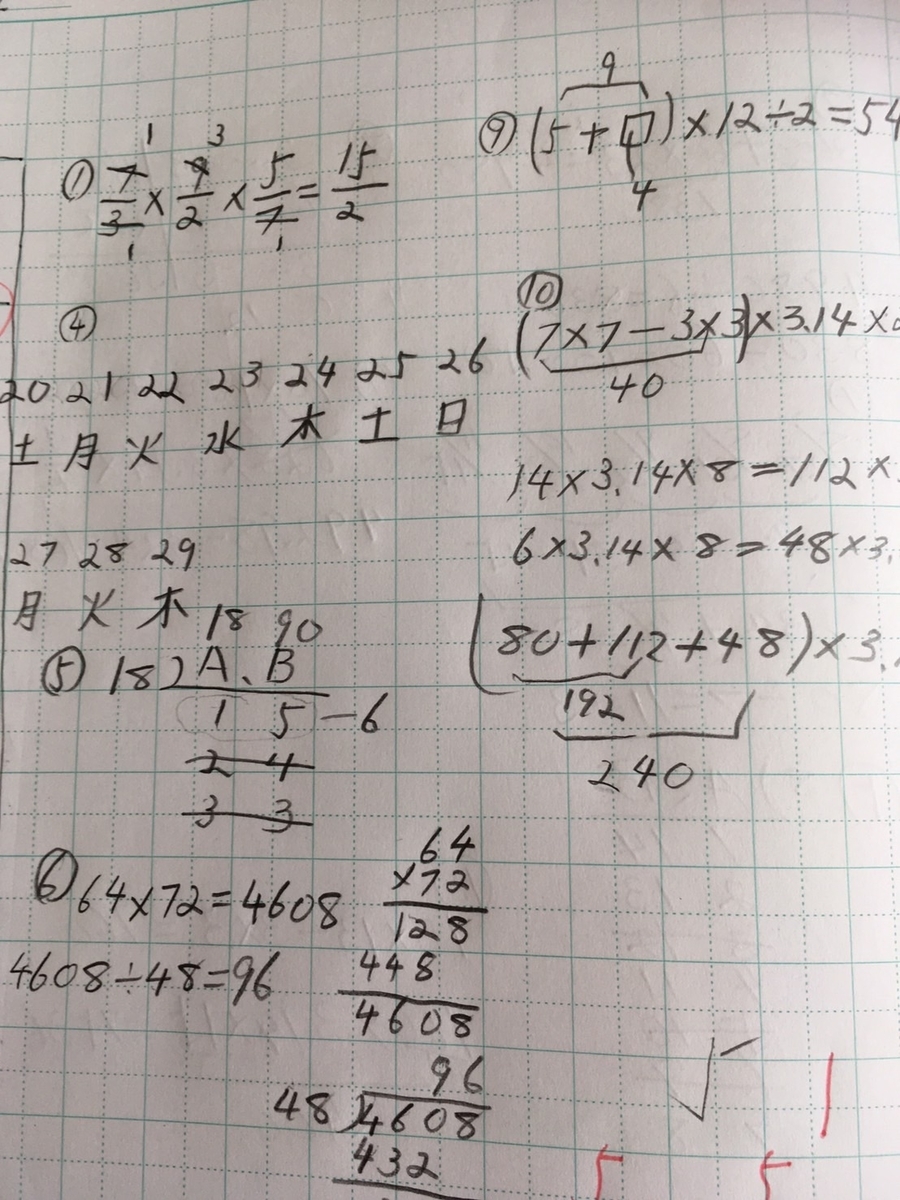 ① 7/3 × 9/2 × 5/7 = 15/2
1 3
1 1
④
20 21 22 23 24 25 26
土 月 火 水 木 土 日
27 28 29
月 火 木
18 90
⑤ 18)A、B
1 5 −6
2 4
3 3
⑥ 64×72=4608
4608÷48=96
64
×72
128
448
4608
96
48)4608
432
9
⑨ (5+□)×12÷2=54
4
⑩
(7×7−3×3)×3.14×
40
14×3.14×8=112×
6×3.14×8=48×3.
(80+112+48)×3.
192
240